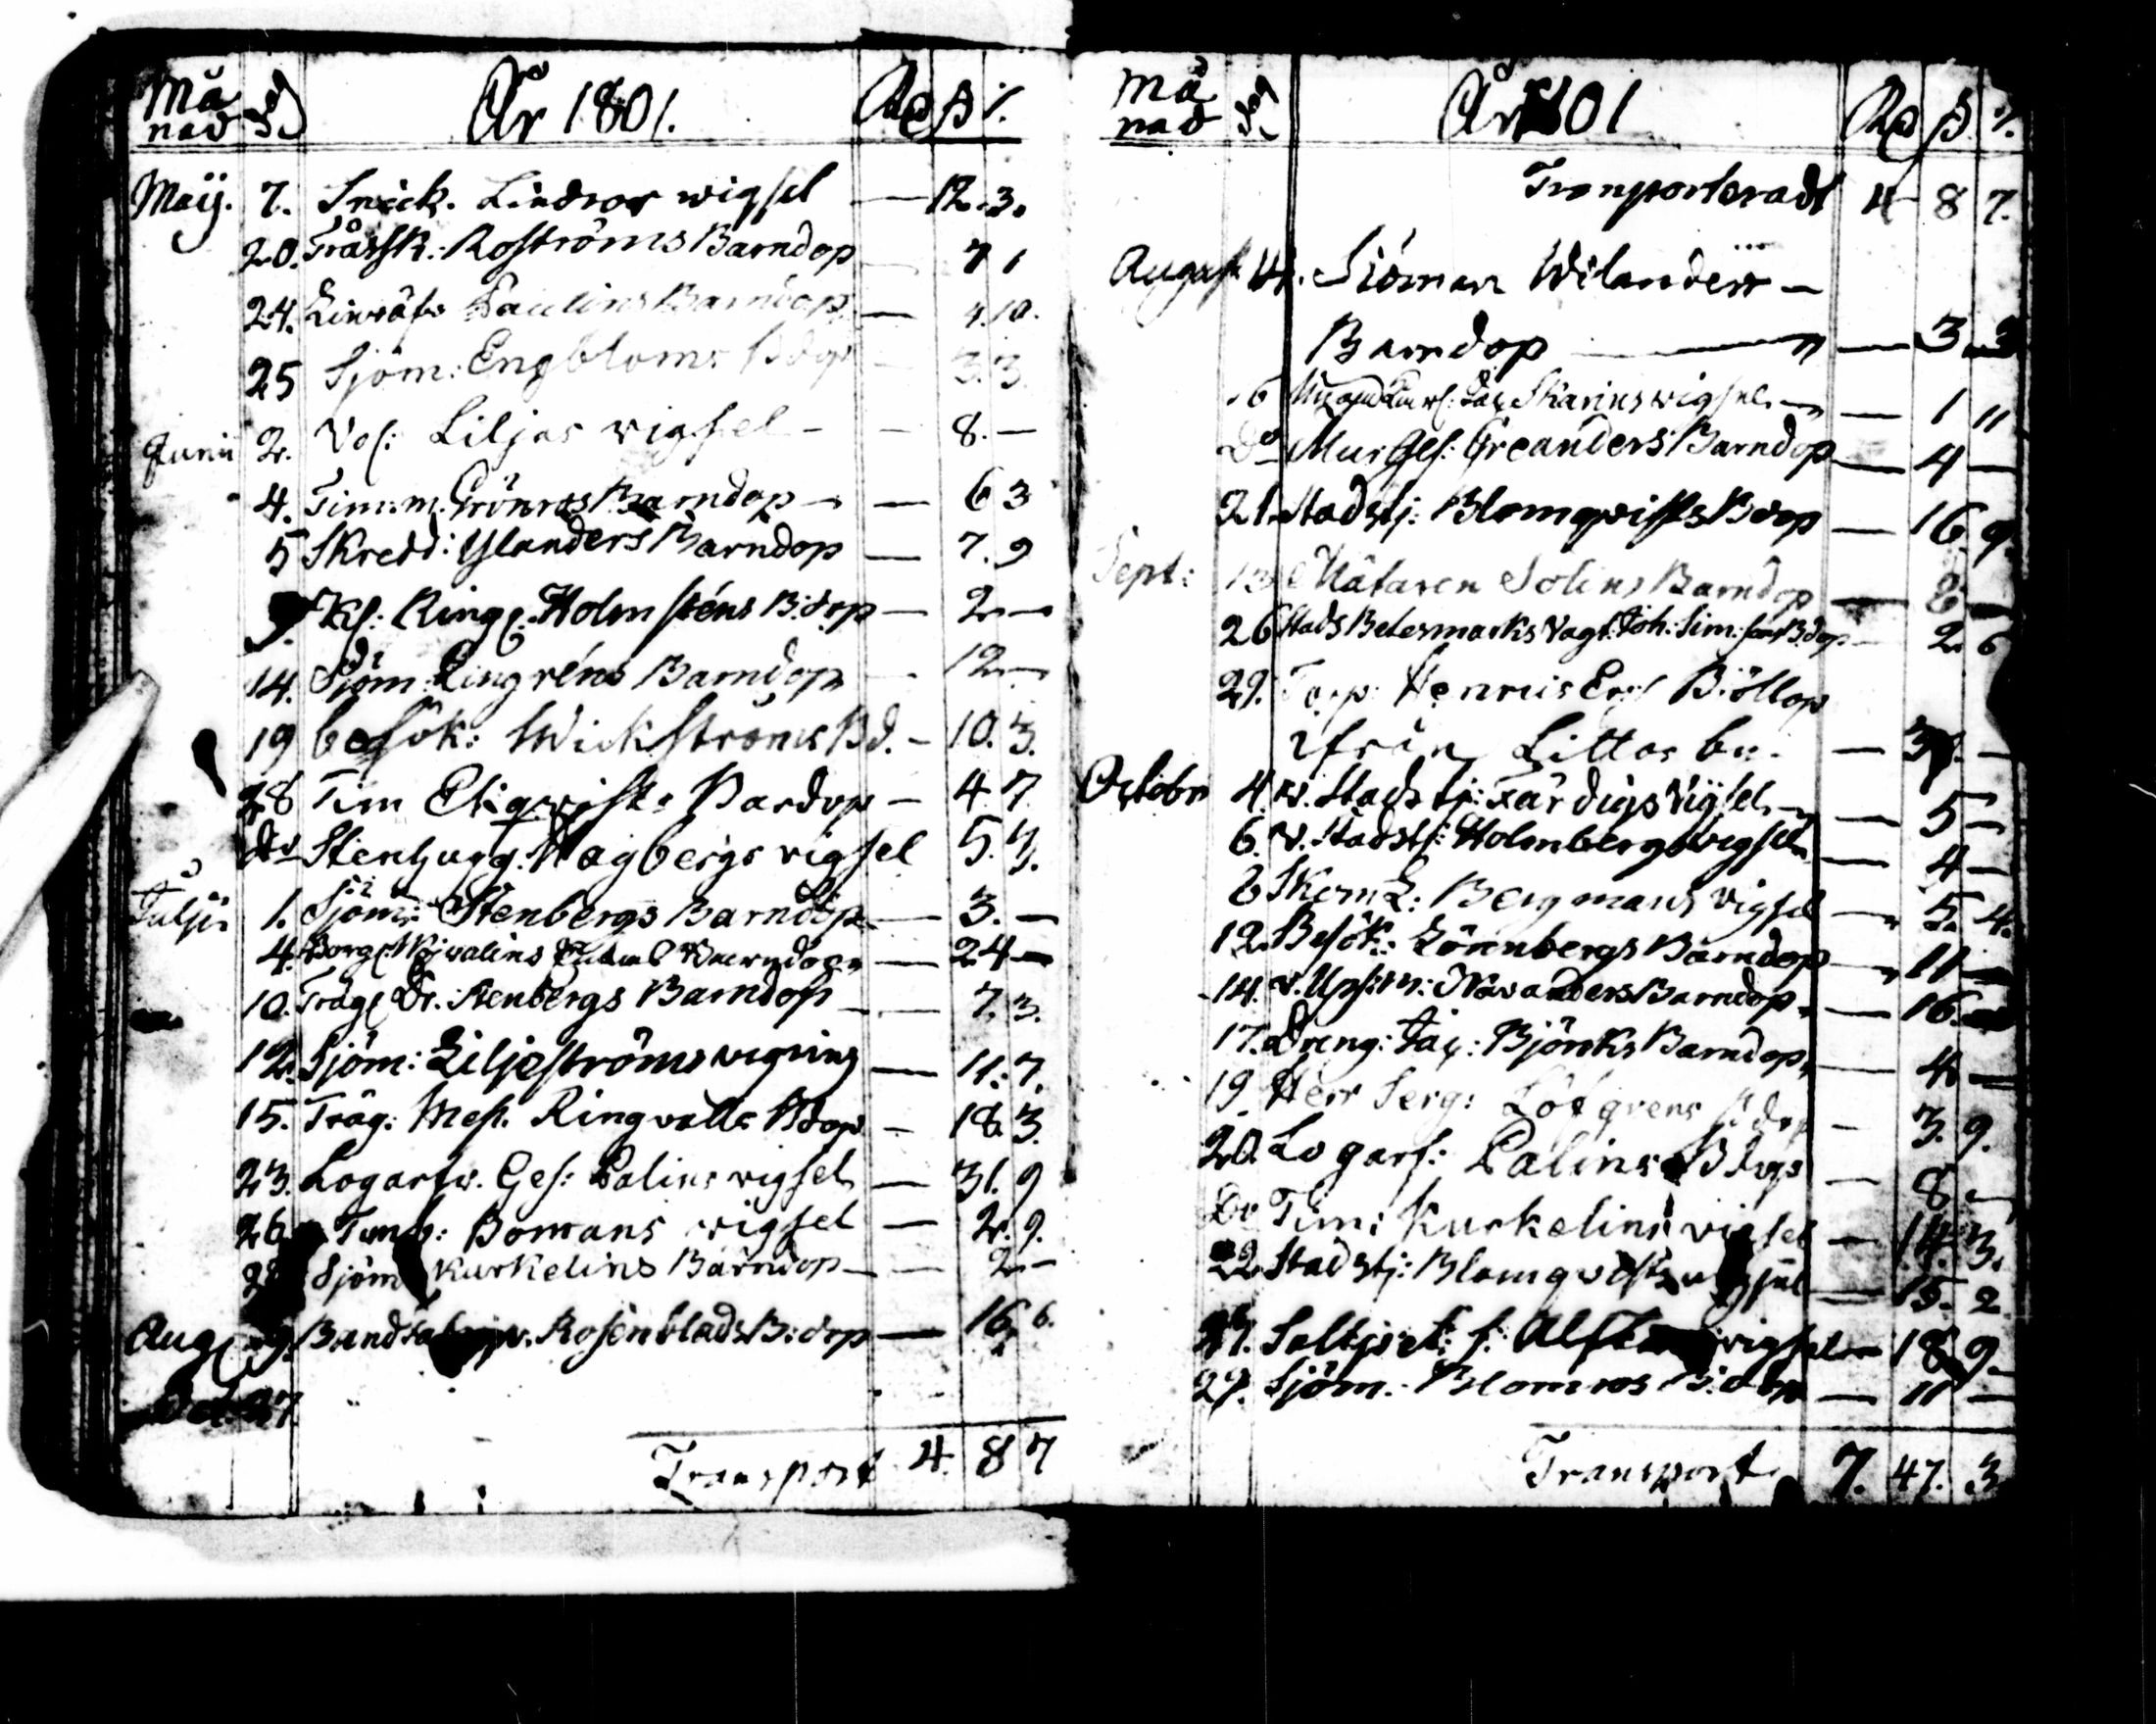 Må
nad År 1801. Rd ß
Maij. 7. Snick. Lindros wigsel — 12. 3.
20. Trässk: Roströms Barndop — 7 1
24. Paulins Barndop — 4. 10.
25 Sjöm: Engbloms Bdop — 3. 3.
Junii 2. Vol: Liljas vigsel — 8. —
4. Timm. Grönros Barndop — 6 3
5 Skredd: Ylanders Barndop — 7. 9
9. Kl: Ring. Holmsténs B:dop — 2 —
14. Sjöm: Lingréns Barndop — 12 —
19 besök: Wickströms Bd. — 10. 3.
28 Tim Ekqvists Bardop — 4 7.
do Stenhugg. Hagbergs vigsel 5. 3.
Julji 1. Sjöm: Stenbergs Barndop — 3. —
4. Borg: Barndop — 24 —
10. Träg Dr. Stenbergs Barndop — 7. 3.
12. Sjöm: Liljeströms vigning — 11. 7.
15. Träg: Mest. Ringvalls Bdop — 18. 3.
23. Logarfv. Ges: Palins vigsel — 31. 9
26 Timb: Bomans vigsel — 2. 9.
Sjöm Kurkelins Barndop — 2 —
Aug 9. Rosenblads B:dop — 16 6.
27
Transport 4. 8 7
Må
nad dag År 1801 Rd ß
Transporteradt 4 8 7.
August 14. Siöman Wilanders —
Barndop — 3 3
16 Skarins vigsel — 1 "
Do Mur Ges: Greanders Barndop — 4 —
21. Stadstj: Blomqvists Bdop — 16 9
Sept: 13 Mätaren Solins Barndop — 8 —
26 Stads Betesmarks Vagt: Joh: Sim: sons Bdop — 2. 6
29. Torp: Henrics Ers Bröllop
ifrån Littos by. — —
Octobr 4. v. Stadstj: Färdigs Vigsel — 5 —
6. v. Stadstj: Holmbergs vigsel — 4 —
8 Bergmans vigsel — 5. 4.
12. Besök: Lönnbergs Barndop — 11 —
14. v. Ups:m: Novanders Barndop — 16. —
17. Dreng: Jac: Björcks Barndop — 4 —
19. Herr Serg: Löfgrens Bdop — 3. 9.
20. Logarf: Palins Bdop — 8 —
Do Tim: Kurkelins vigsel — 14. 3.
22 Stadstj: Blomqvists vigsel — 15. 2
vigsel — 18 9.
29. Sjöm. Blomros B:dop — 11 —
Transport 7. 47. 3